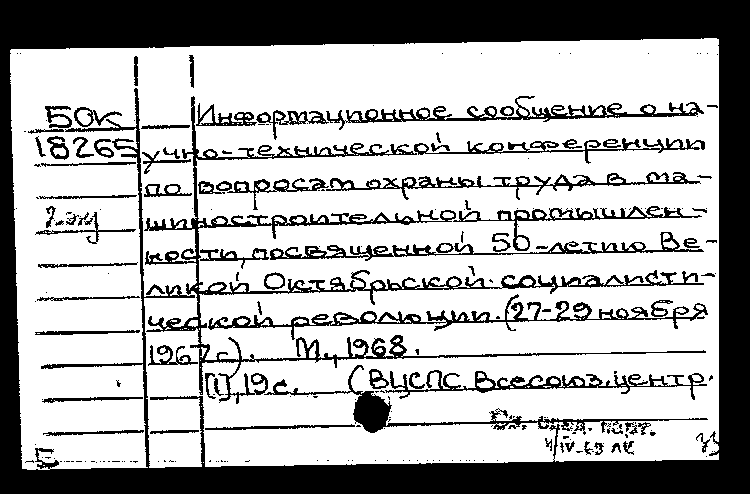 50к Информационное сообщение о на-
18265 учно-технической конференции
по вопросам охраны труда в ма-
2 экз шиностроительной промышлен-
ности, посвященной 50-летию Ве-
ликой Октябрьской социалисти-
ческой революции. (27-29 ноября
1967 г.). М., 1968.
[1], 19 с. (ВЦСПС. Всесоюз. центр.
См. след. карт.
IV-69 ЛК
Б